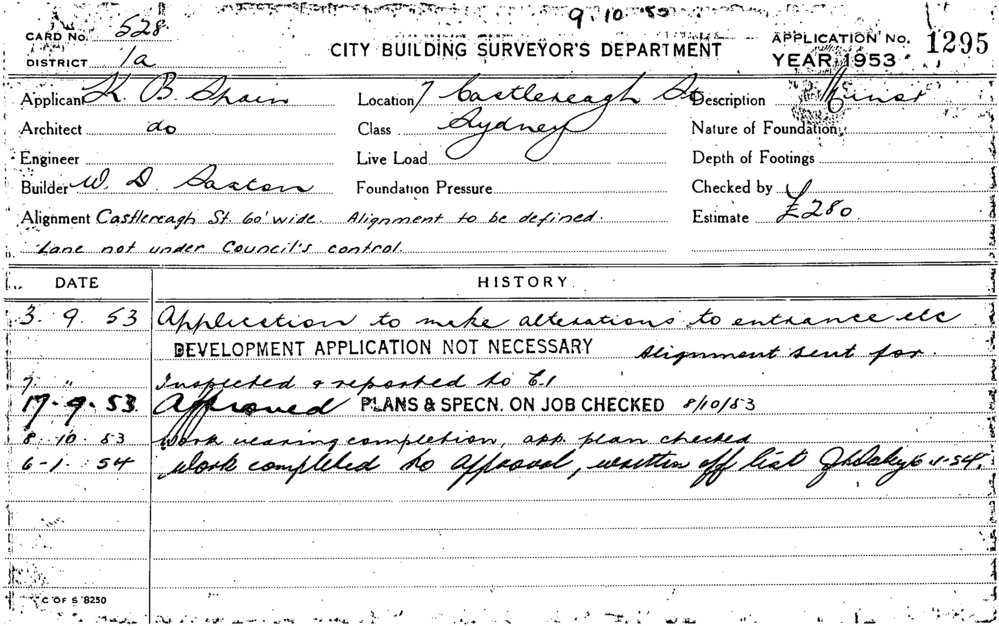 9.10.53
CARD No. 528 CITY BUILDING SURVEYOR'S DEPARTMENT APPLICATION No. 1295
DISTRICT 1a YEAR 1953
Applicant K B Spain Location 7 Castlereagh St Description
Architect do Class Sydney Nature of Foundation
Engineer Live Load Depth of Footings
Builder W. D. Saxton Foundation Pressure Checked by
Alignment Castlereagh St. 60' wide. Alignment to be defined. Estimate £280
Lane not under Council's control.
DATE HISTORY
3. 9. 53 Application to make alterations to entrance etc
DEVELOPMENT APPLICATION NOT NECESSARY Alignment sent for.
7 " Inspected & reported to C.I
17.9.53. Approved PLANS & SPECN. ON JOB CHECKED 8/10/53
8. 10. 53 Work nearing completion, app. plan checked
6-1. 54 Work completed to approval, written off list 6-1-54.
C OF S 8250